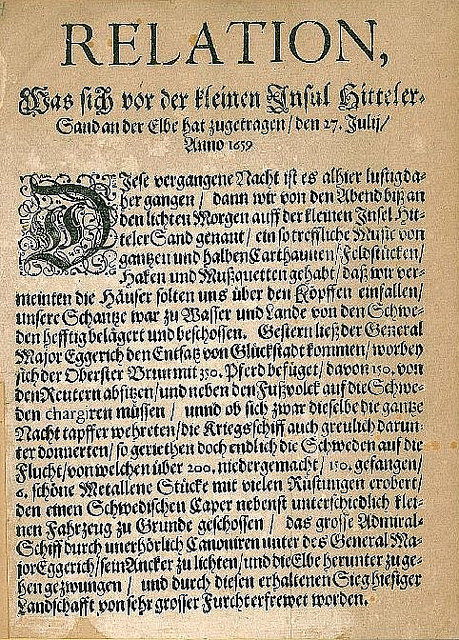 RELATION,
Was sich vor der kleinen Insul Hitteler-
Sand an der Elbe hat zugetragen / den 27. Julij /
Anno 1659
DIese vergangene Nacht ist es alhier lustig da-
her gangen / dann wir von den Abend biß an
den lichten Morgen auff der kleinen Insel Hit-
teler Sand genant / ein so treffliche Music von
gantzen und halben Carthaunen / Feldstücken /
Haken und Mußquetten gehabt / daß wir ver-
meinten die Häuser solten uns über den Köpffen einfallen /
unsere Schantze war zu Wasser und Lande von den Schwe-
den hefftig belägert und beschossen. Gestern ließ der General
Major Eggerich den Entsatz von Glückstadt kommen / worbey
sich der Oberster Brun mit 350. Pferd befüget / davon 150. von
den Reutern absitzen / und neben den Fußvolck auf die Schwe-
den chargiren müssen / unnd ob sich zwar dieselbe die gantze
Nacht tapffer wehreten / die Kriegsschiff auch greulich darun-
ter donnerten / so geriethen doch endlich die Schweden auf die
Flucht / von welchen über 200. niedergemacht / 150. gefangen /
6. schöne Metallene Stücke mit vielen Rüstungen erobert /
den einen Schwedischen Caper nebenst unterschiedlich klei-
nen Fahrzeug zu Grunde geschossen / das grosse Admiral-
Schiff durch unerhörlich Canoniren unter des General Ma-
jor Eggerich / sein Ancker zu lichten / und die Elbe herunter zu ge-
hen gezwungen / und durch diesen erhaltenen Sieg hiesiger
Landschafft von sehr grosser Furcht erfrewet worden.